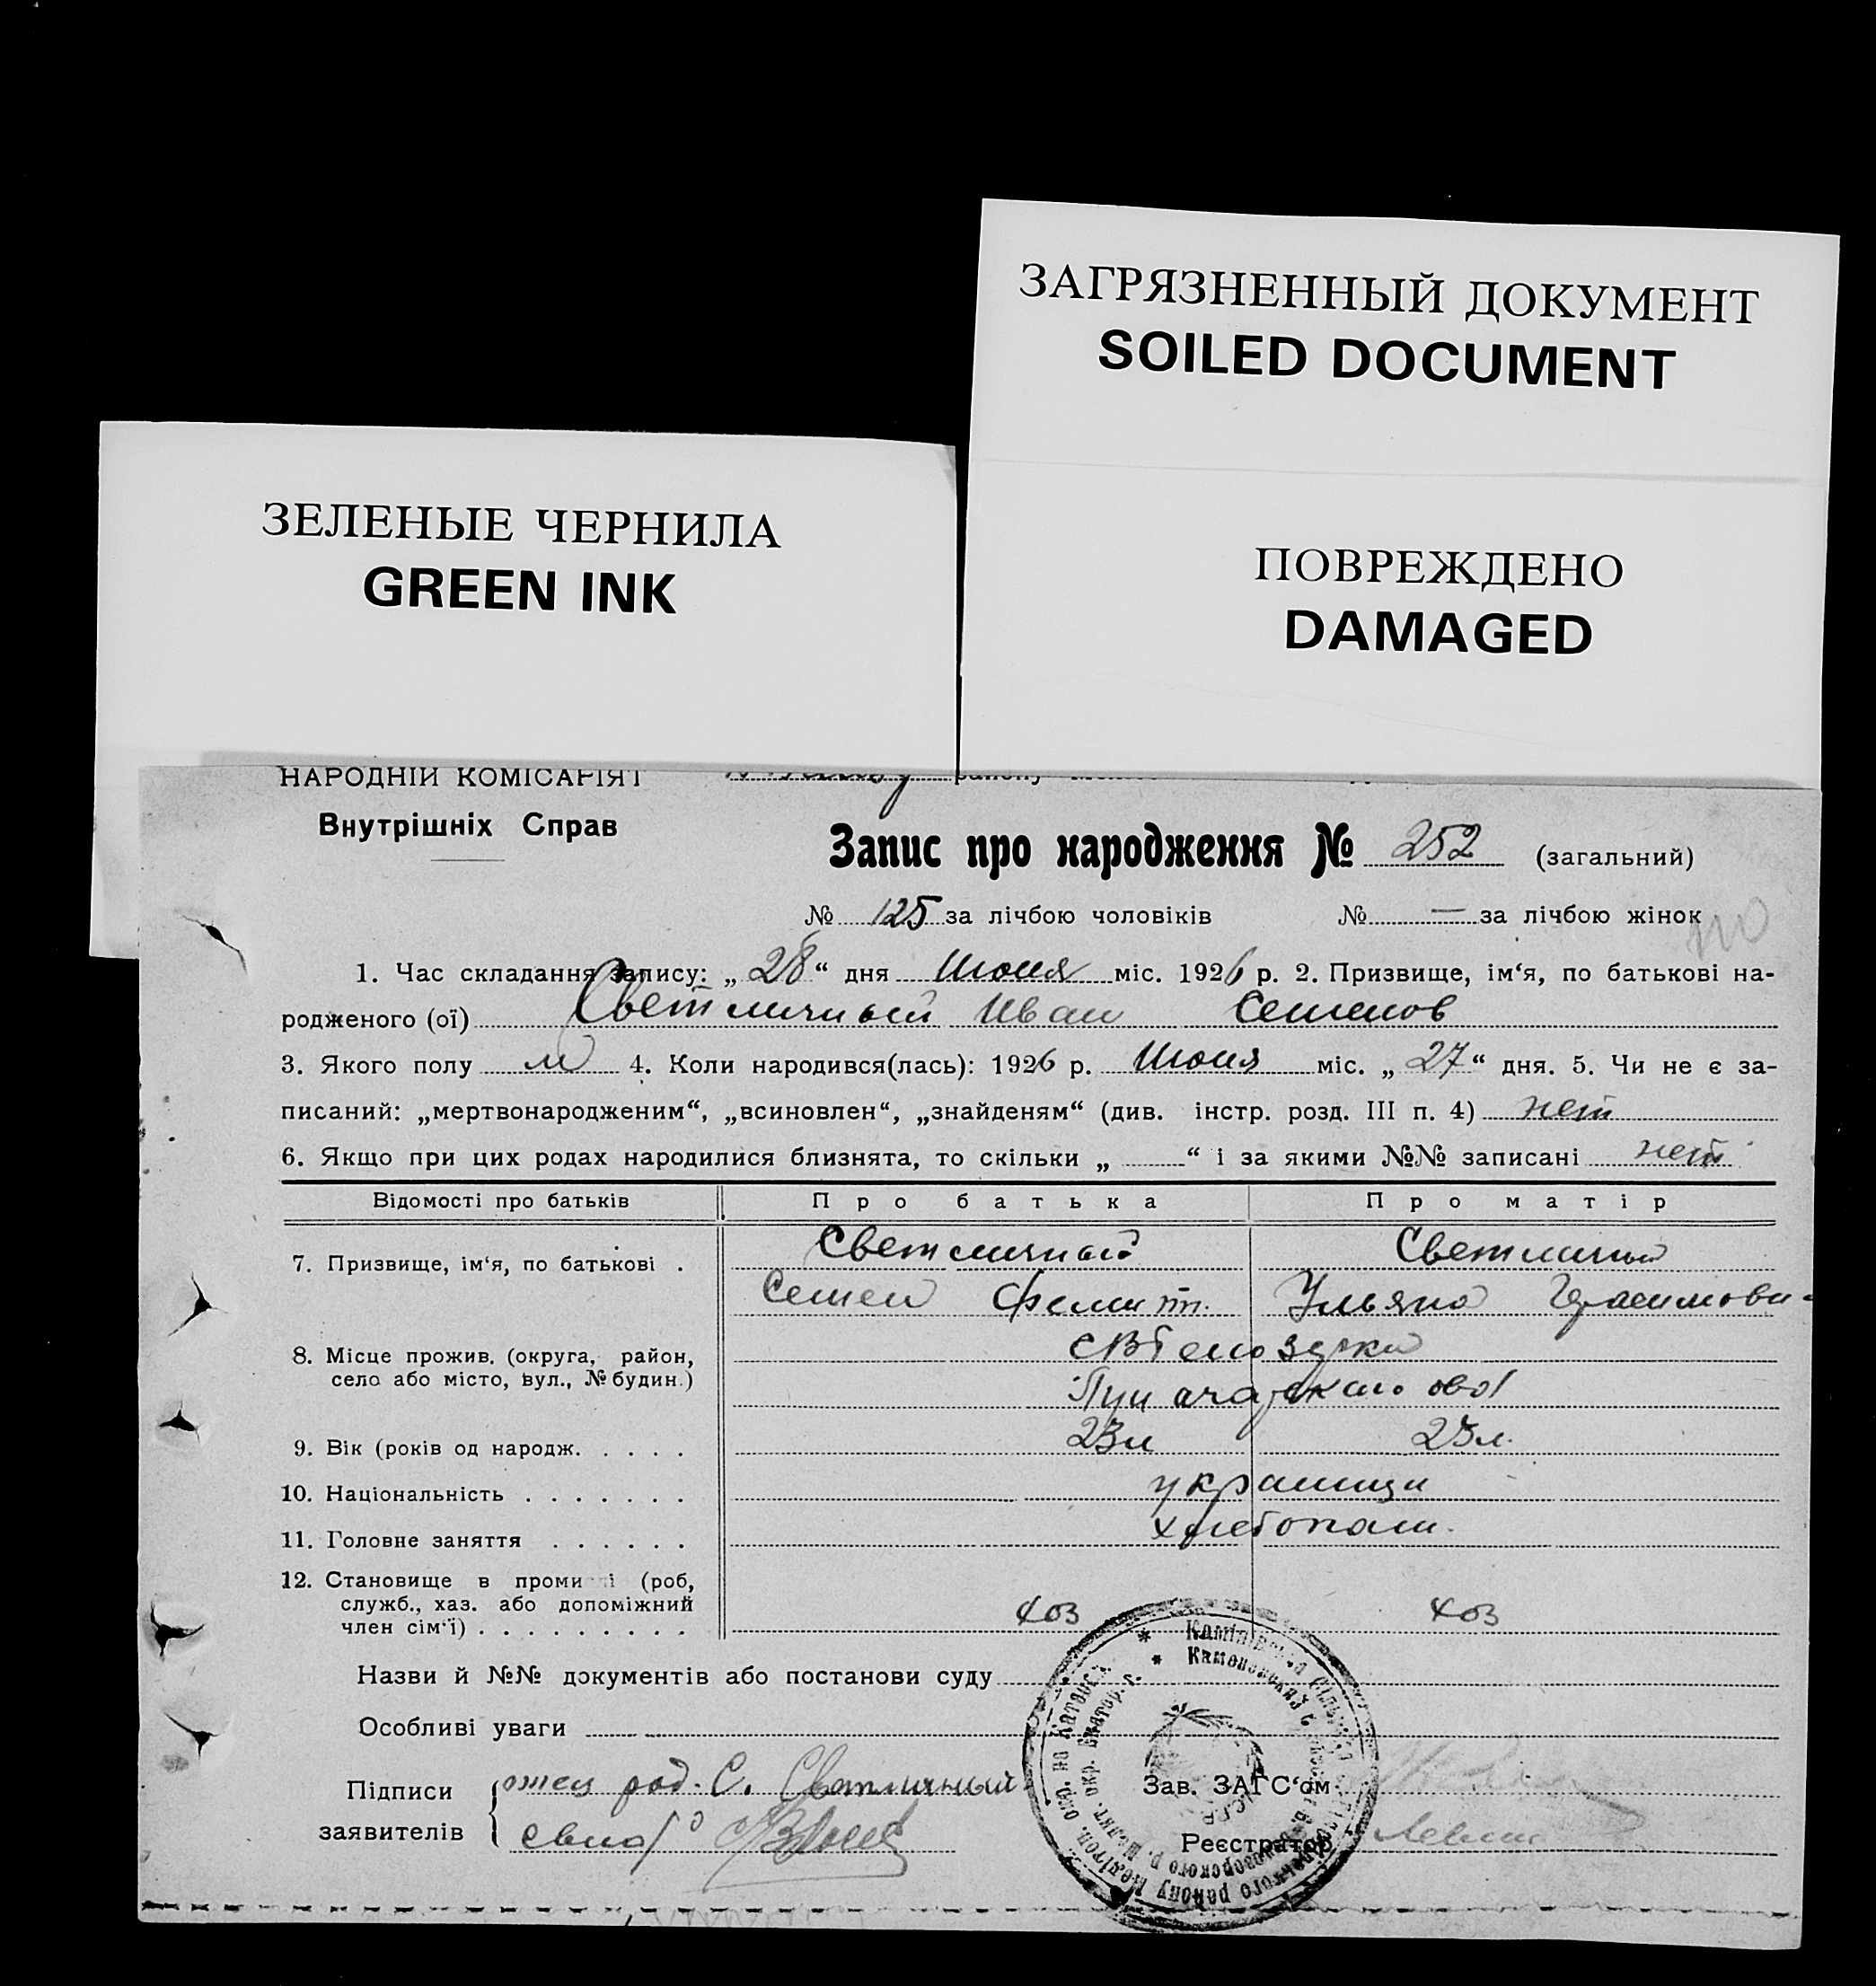 ЗАГРЯЗНЕННЫЙ ДОКУМЕНТ
SOILED DOCUMENT
ЗЕЛЕНЫЕ ЧЕРНИЛА
GREEN INK
ПОВРЕЖДЕНО
DAMAGED
НАРОДНІЙ КОМІСАРІЯТ району
Внутрішніх Справ
Запис про народження № 252 (загальний)
№ 125 за лічбою чоловіків № — за лічбою жінок
1. Час складання запису: „28“ дня Июня міс. 1926 р. 2. Призвище, ім‘я, по батькові на-
родженого (ої) Светличный Иван Семенов
3. Якого полу м 4. Коли народився(лась): 1926 р. Июня міс. „27“ дня. 5. Чи не є за-
писаний: „мертвонародженим“, „всиновлен“, „знайденям“ (див. інстр. розд. III п. 4) нет
6. Якщо при цих родах народилися близнята, то скільки „ “ і за якими №№ записані нет
Відомості про батьків Про батька Про матір
7. Призвище, ім‘я, по батькові . Светличный Светличный
Семен Ульяна
8. Місце прожив. (округа, район,
село або місто, вул., № будин.)
9. Вік (років од народж. . . . . 23л 23л.
10. Національність . . . . . . . украинцы
11. Головне заняття . . . . . . хлебопаш.
12. Становище в проми і (роб,
служб., хаз. або допоміжний
член сім‘ї) . . . . . . . . . хоз хоз
Назви й №№ документів або постанови суду
Особливі уваги
Підписи отец род. С. Светличный Зав. ЗАГС‘ом
заявителів Реєстратор